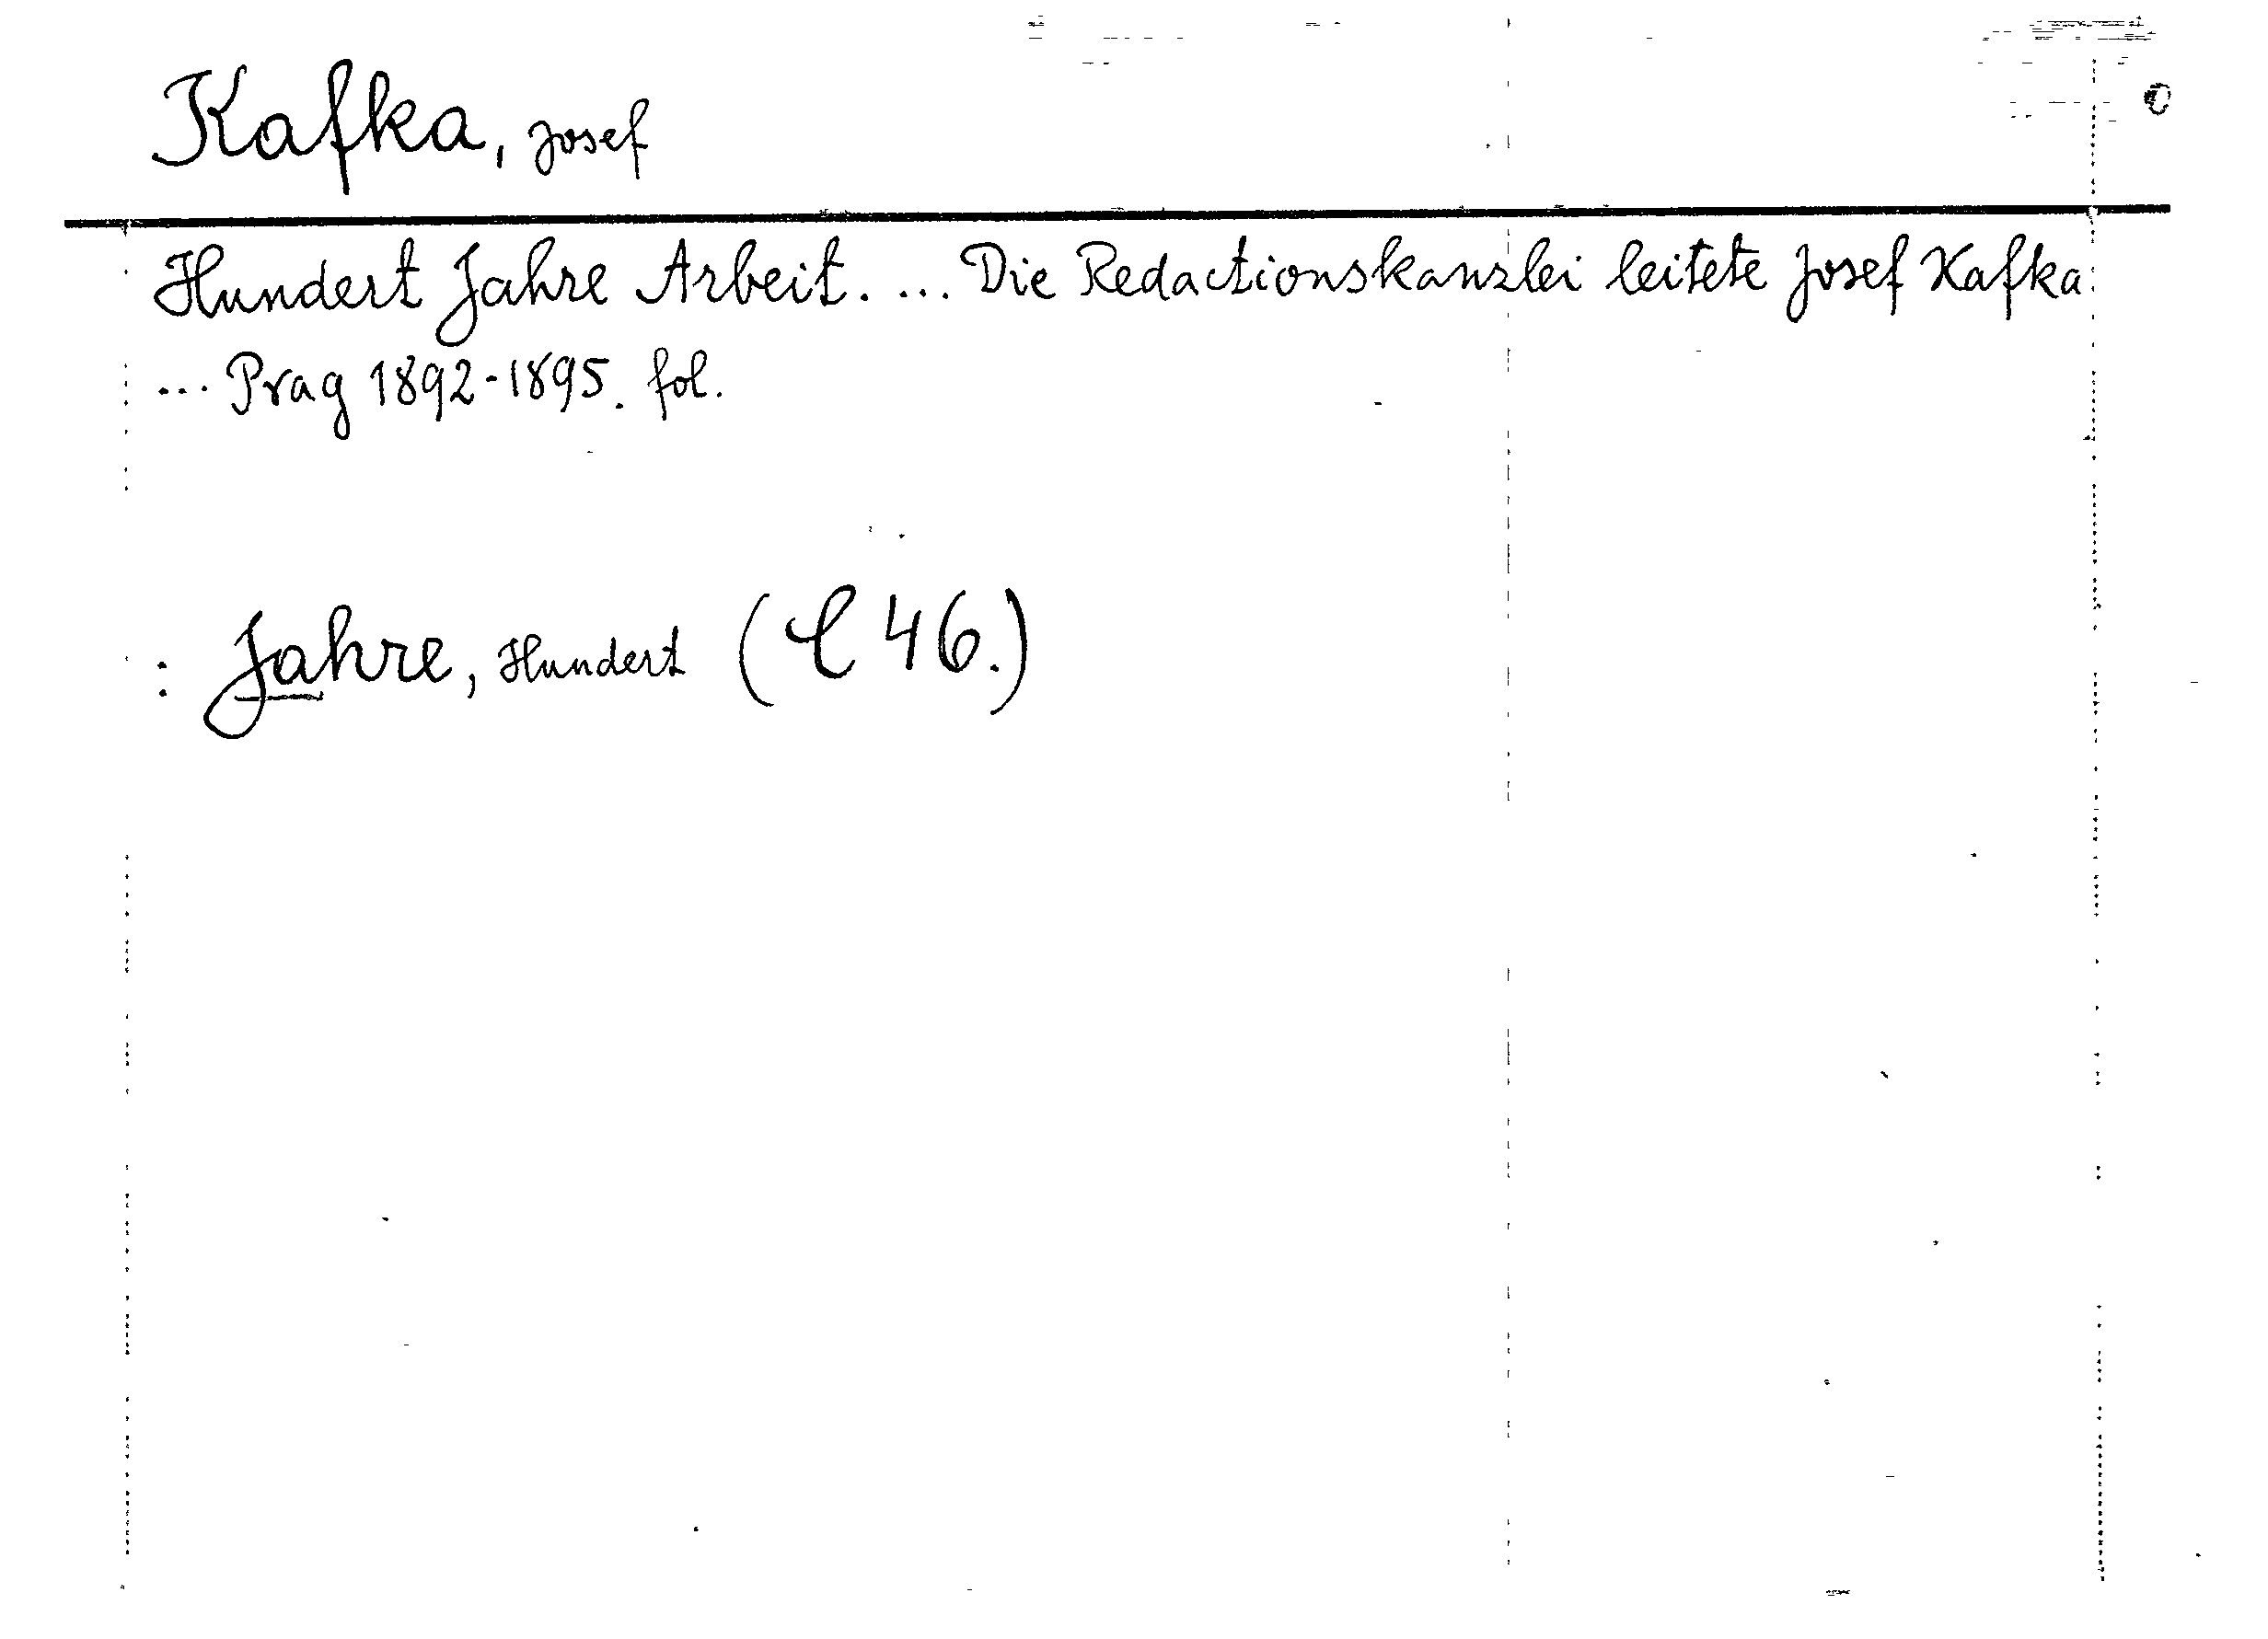 Kafka, Josef
Hundert Jahre Arbeit. ... Die Redactionskanzlei leitete Josef Kafka
... Prag 1892-1895. fol.
: Jahre, Hundert ( 46.)